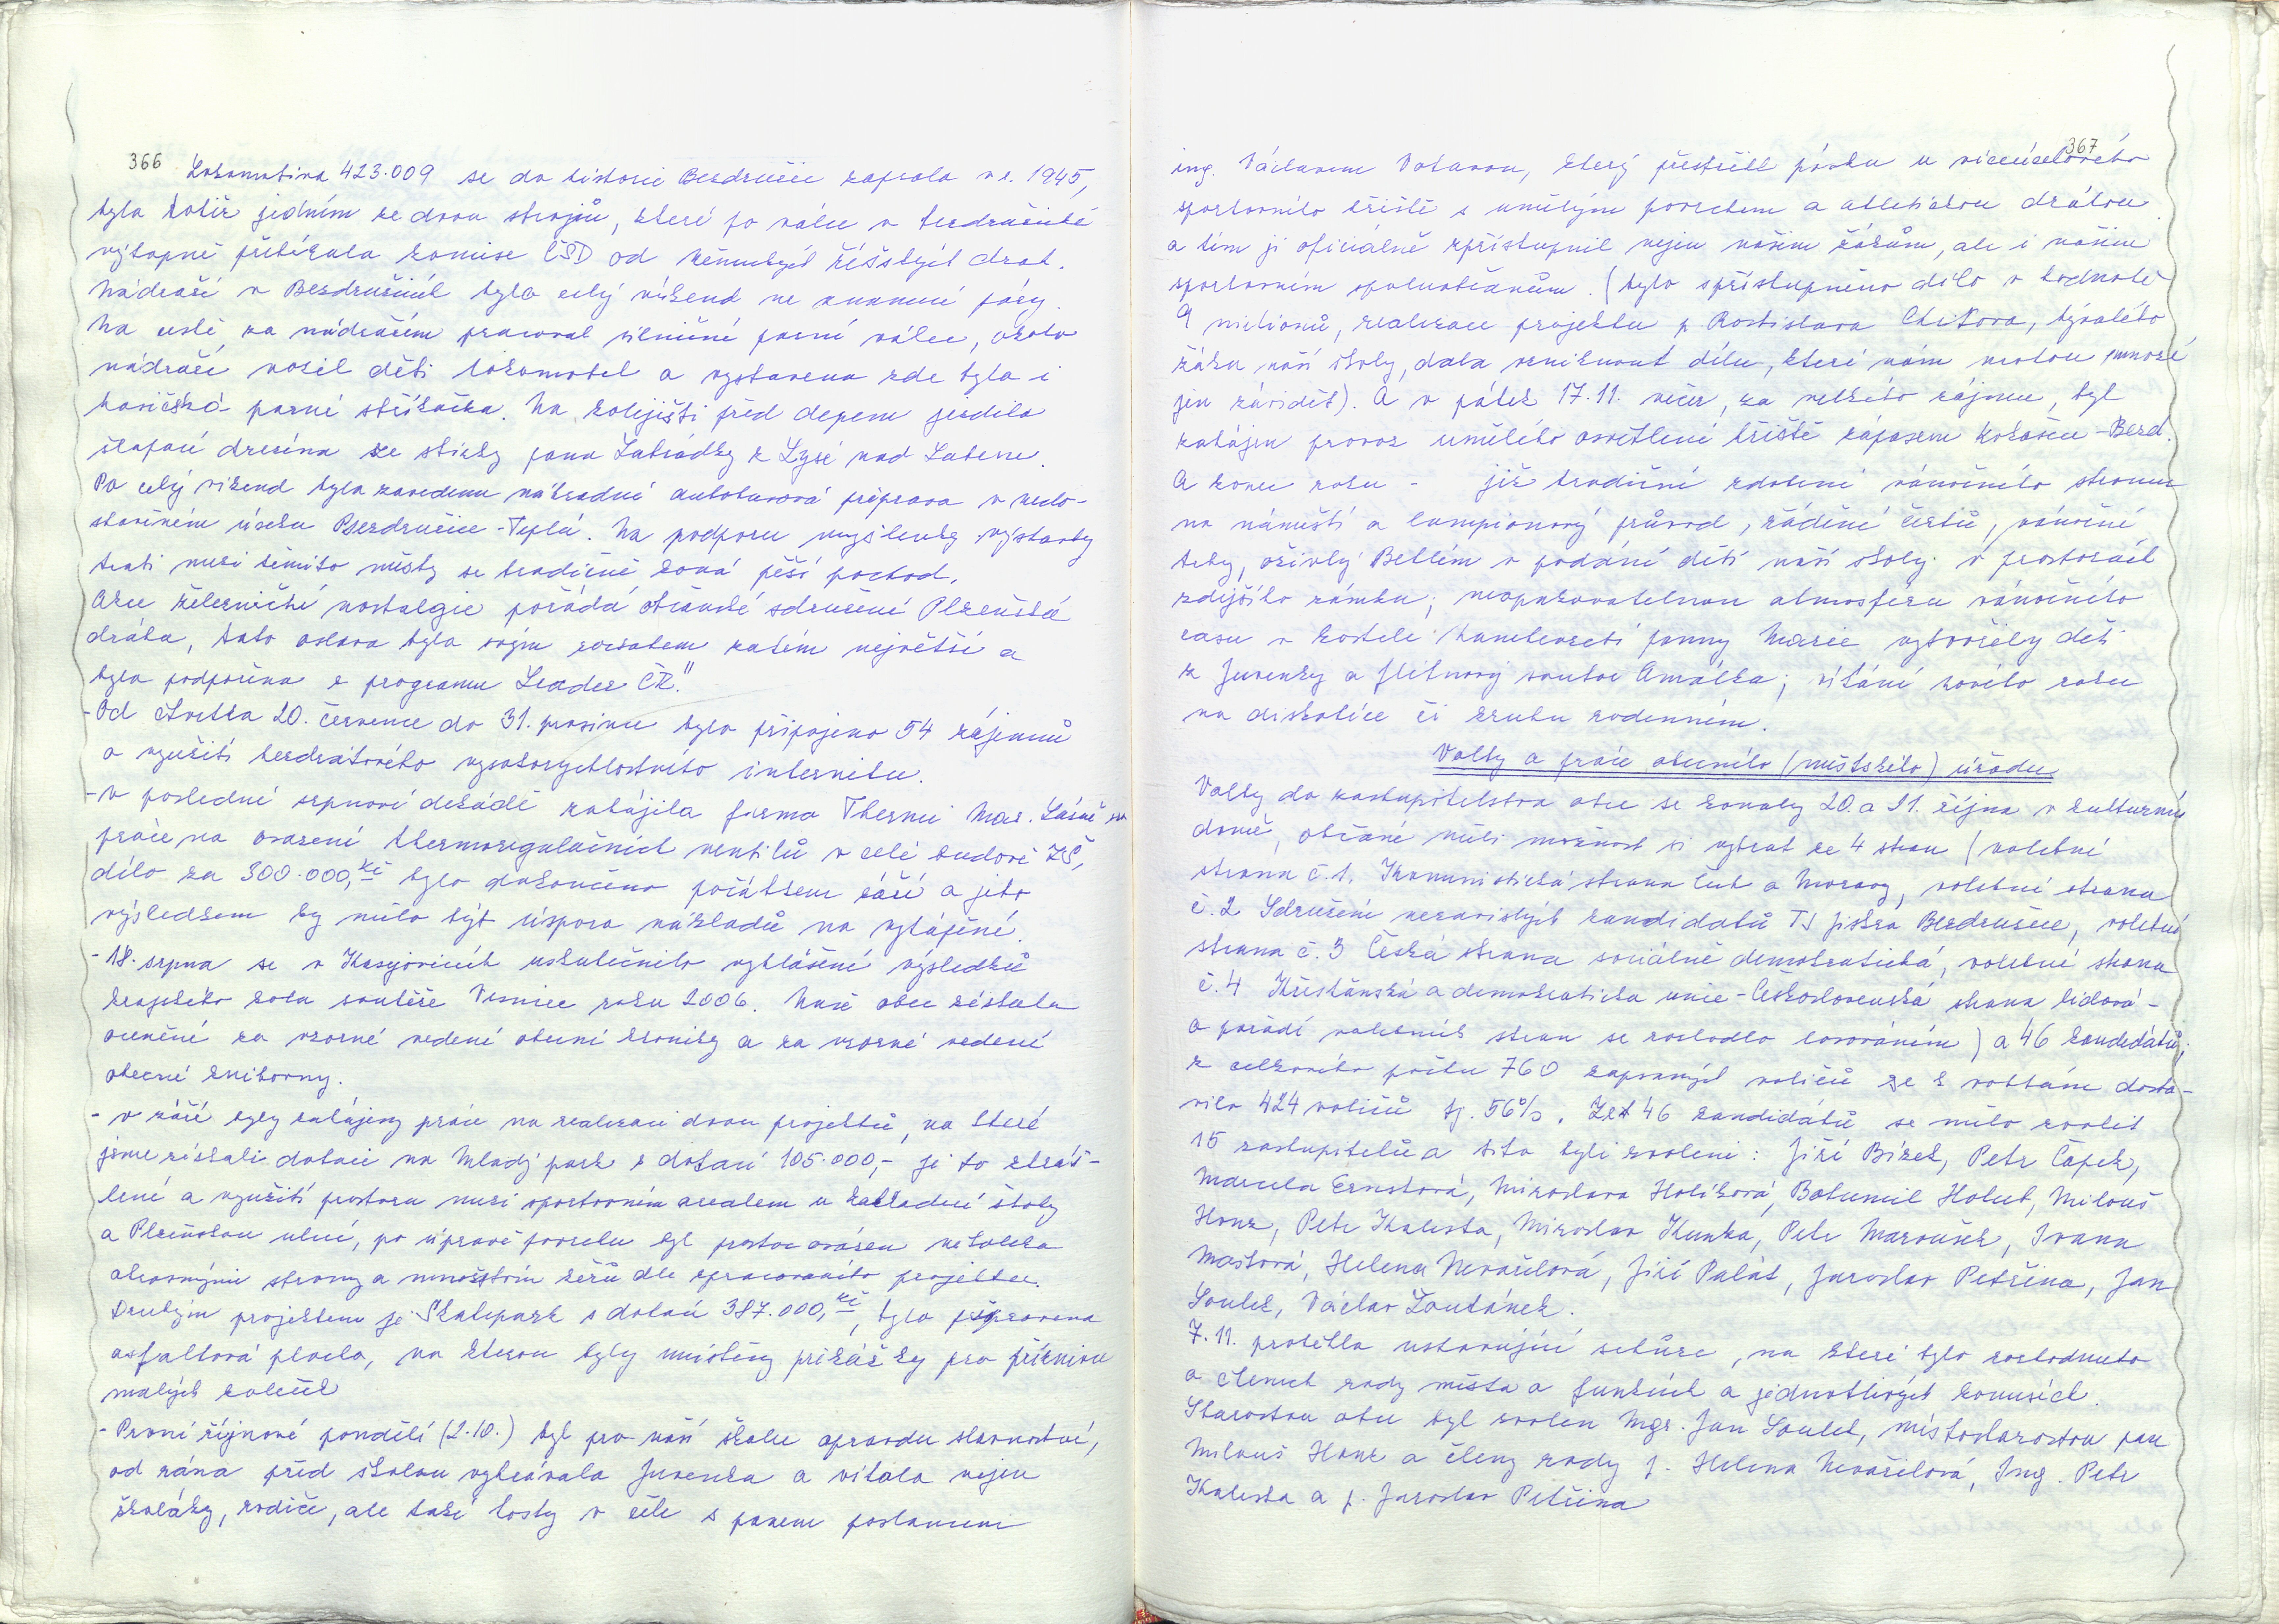 366 Lokomotiva 423.009 se do historie Bezdružic zapsala v r. 1945,
byla totiž jedním ze dvou strojů, které po válce v bezdružické
výtopně přebírala komise ČSD od německých říšských drah.
Nádraží v Bezdružicích bylo celý víkend ve znamení páry.
Na cestě za nádražím pracoval silniční parní válec, okolo
nádraží vozil děti lokomobil a vystavena zde byla i
hasičská parní stříkačka. Na kolejišti před depem jezdila
šlapací drezína ze sbírky pana Zahrádky z Lysé nad Labem.
Po celý víkend byla zavedena náhradní autobusová přeprava v nedo-
stavěném úseku Bezdružice-Teplá. Na podporu myšlenky výstavby
trati mezi těmito místy se tradičně koná pěší pochod.
Akce železniční nostalgie pořádá občanské sdružení Plzeňská
dráha, tato oslava byla svým rozsahem zatím největší a
byla podpořena z programu Leader ČR."
-Od čtvrtka 20. července do 31. prosince bylo připojeno 54 zájemců
o využití bezdrátového vysokorychlostního internetu.
-v poslední srpnové dekádě zahájila firma Thermi Mar. Lázně
práce na osazení thermoregulačních ventilů v celé budově ZŠ,
dílo za 300.000,Kč bylo dokončeno počátkem září a jeho
výsledkem by měla být úspora nákladů na vytápění.
-18. srpna se v Kasejovicích uskutečnilo vyhlášení výsledků
krajského kola soutěže Vesnice roku 2006. Naše obec získala
ocenění za vzorné vedení obecní kroniky a za vzorné vedení
obecní knihovny.
- v září byly zahájeny práce na realizaci dvou projektů, na které
jsme získali dotaci na Mladý park s dotací 105.000,- je to zkráš-
lení a využití prostoru mezi sportovním arealem u základní školy
a Plzeňskou ulicí, po úpravě povrchu byl prostor osázen několika
okrasnými stromy a množstvím keřů dle zpracovaného projektu.
Druhým projektem je Skatepark s dotací 387.000,Kč, byla připravena
asfaltová plocha, na kterou byly umístěny překážky pro příznivce
malých koleček
-První říjnové pondělí (2.10.) byl pro naší školu opravdu slavnostní,
od rána před školou vyhrávala Juvenka a vítala nejen
školáky, rodiče, ale také hosty v čele s panem poslancem
367
ing. Václavem Votavou, který přestřihl pásku u víceúčelového
sportovního hřiště s umělým povrchem a atletickou dráhou
a tím ji oficiálně zpřístupnil nejen našim žákům, ale i našim
sportovním spoluobčanům. (bylo zpřístupněno dílo v hodnotě
9 milionů, realizace projektu p Rostislava Chitora, bývalého
žáka naší školy, dala vzniknout dílu, které nám mohou mnozí
jen závidět). A v pátek 17.11. večer, za velkého zájmu, byl
zahájen provoz umělého osvětlení hřiště zápasem Kokašice-Bezd.
A konec roku - již tradiční zdobení vánočního stromu
na náměstí a lampionový průvod, řádění čertů, vánoční
trhy, oživlý Betlém v podání dětí naší školy v prostorách
zdejšího zámku; neopakovatelnou atmosferu vánočního
času v kostele Nanebevzetí panny Marie vytvořily děti
z Juvenky a flétnový soubor Amálka; vítání nového roku
na diskotéce či kruhu rodinném.
Volby a práce obecního (městského) úřadu
Volby do zastupitelstva obce se konaly 20. a 21. října v kulturním
domě, občané měli možnost si vybrat ze 4 stran (volební
strana č.1. Komunistická strana Čech a Moravy, volební strana
č.2 Sdružení nezavislých kandidatů TJ Jiskra Bezdružice, volební
strana č.3 Česká strana sociálně demokratická, volební strana
č.4 Křesťanská a demokraticka unie-Československá strana lidová-
o pořadí volebních stran se rozhodlo losováním) a 46 kandidátů;
z celkového počtu 760 zapsaných voličů se k volbám dosta-
vilo 424 voličů tj. 56%. Ze 46 kandidátů se mělo zvolit
15 zastupitelů a tito byli zvoleni: Jiří Bízek, Petr Čapek,
Marcela Ernstová, Miroslava Holíková, Bohumil Holub, Milouš
Honz, Petr Kalista, Miroslav Kunka, Petr Maroušek, Ivana
Maštová, Helena Nevařilová, Jiří Palát, Jaroslav Petřina, Jan
Soulek, Václav Zoubánek.
7.11. proběhla ustavující schůze, na které bylo rozhodnuto
o členech rady města a funkcích a jednotlivých komisích.
Starostou obce byl zvolen Mgr. Jan Soulek, místostarostou pan
Milouš Honz a členy rady p. Helena Nevařilová, Ing. Petr
Kalista a p. Jaroslav Petřina